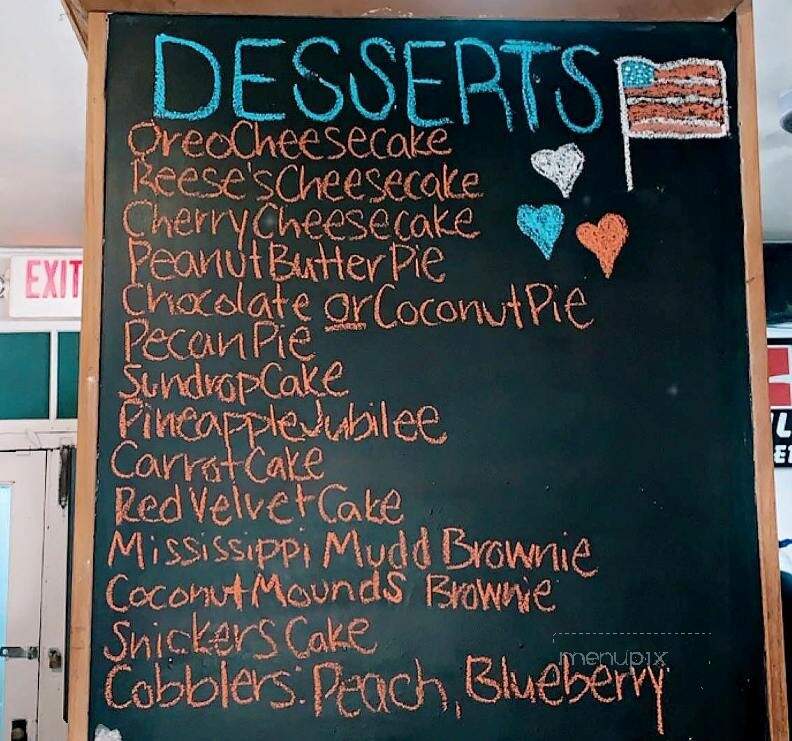 DESSERTS
Oreo Cheesecake
Reese's Cheesecake
Cherry Cheesecake
Peanut Butter Pie
EXIT
Chocolate or Coconut Pie
Pecan Pie
Sundrop Cake
Pineapple Jubilee
Carrot Cake
Red Velvet Cake
Mississippi Mudd Brownie
Coconut Mounds Brownie
Snickers Cake
menupix
Cobblers: Peach, Blueberry